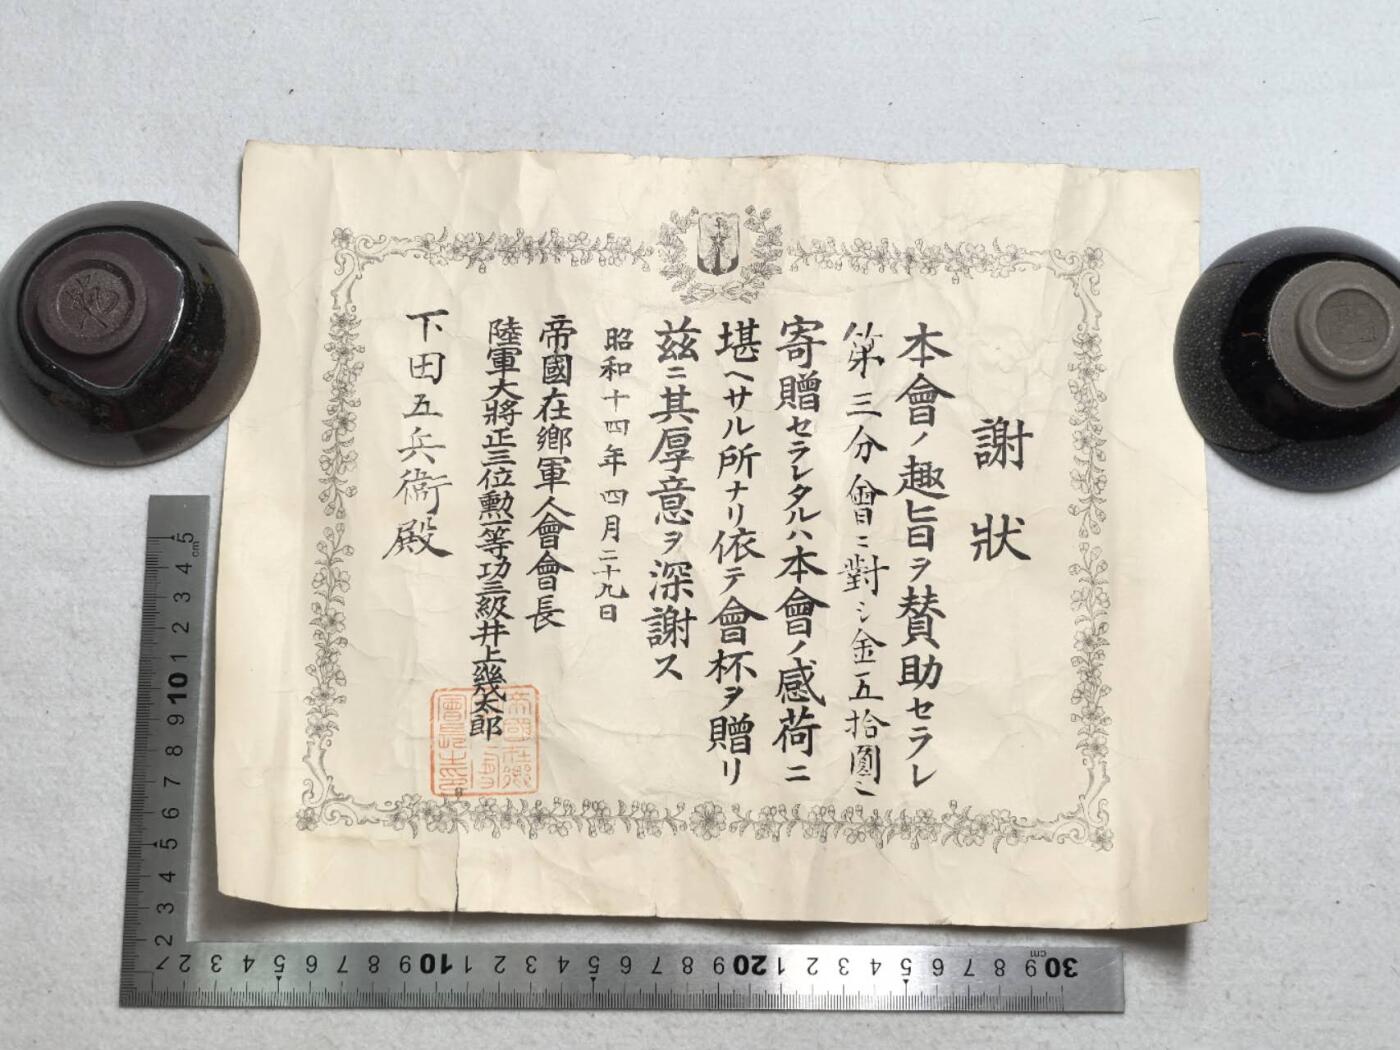 謝狀
本會ノ趣旨ヲ賛助セラレ
第三分會ニ對シ金五拾圓ヲ
寄贈セラレタルハ本會ノ感荷ニ
堪ヘサル所ナリ依テ會杯ヲ贈リ
茲ニ其厚意ヲ深謝ス
昭和十四年四月二十九日
帝國在鄉軍人會會長
陸軍大將正三位勲一等功三級井上幾太郎
下田五兵衞殿
帝國在鄉
軍人
會長之印
5 cm
4
3
2
1
10
9
8
7
6
5
4
3
2
1 2 3 4 5 6 7 8 9 10 1 2 3 4 5 6 7 8 9 20 1 2 3 4 5 6 7 8 9 30 cm